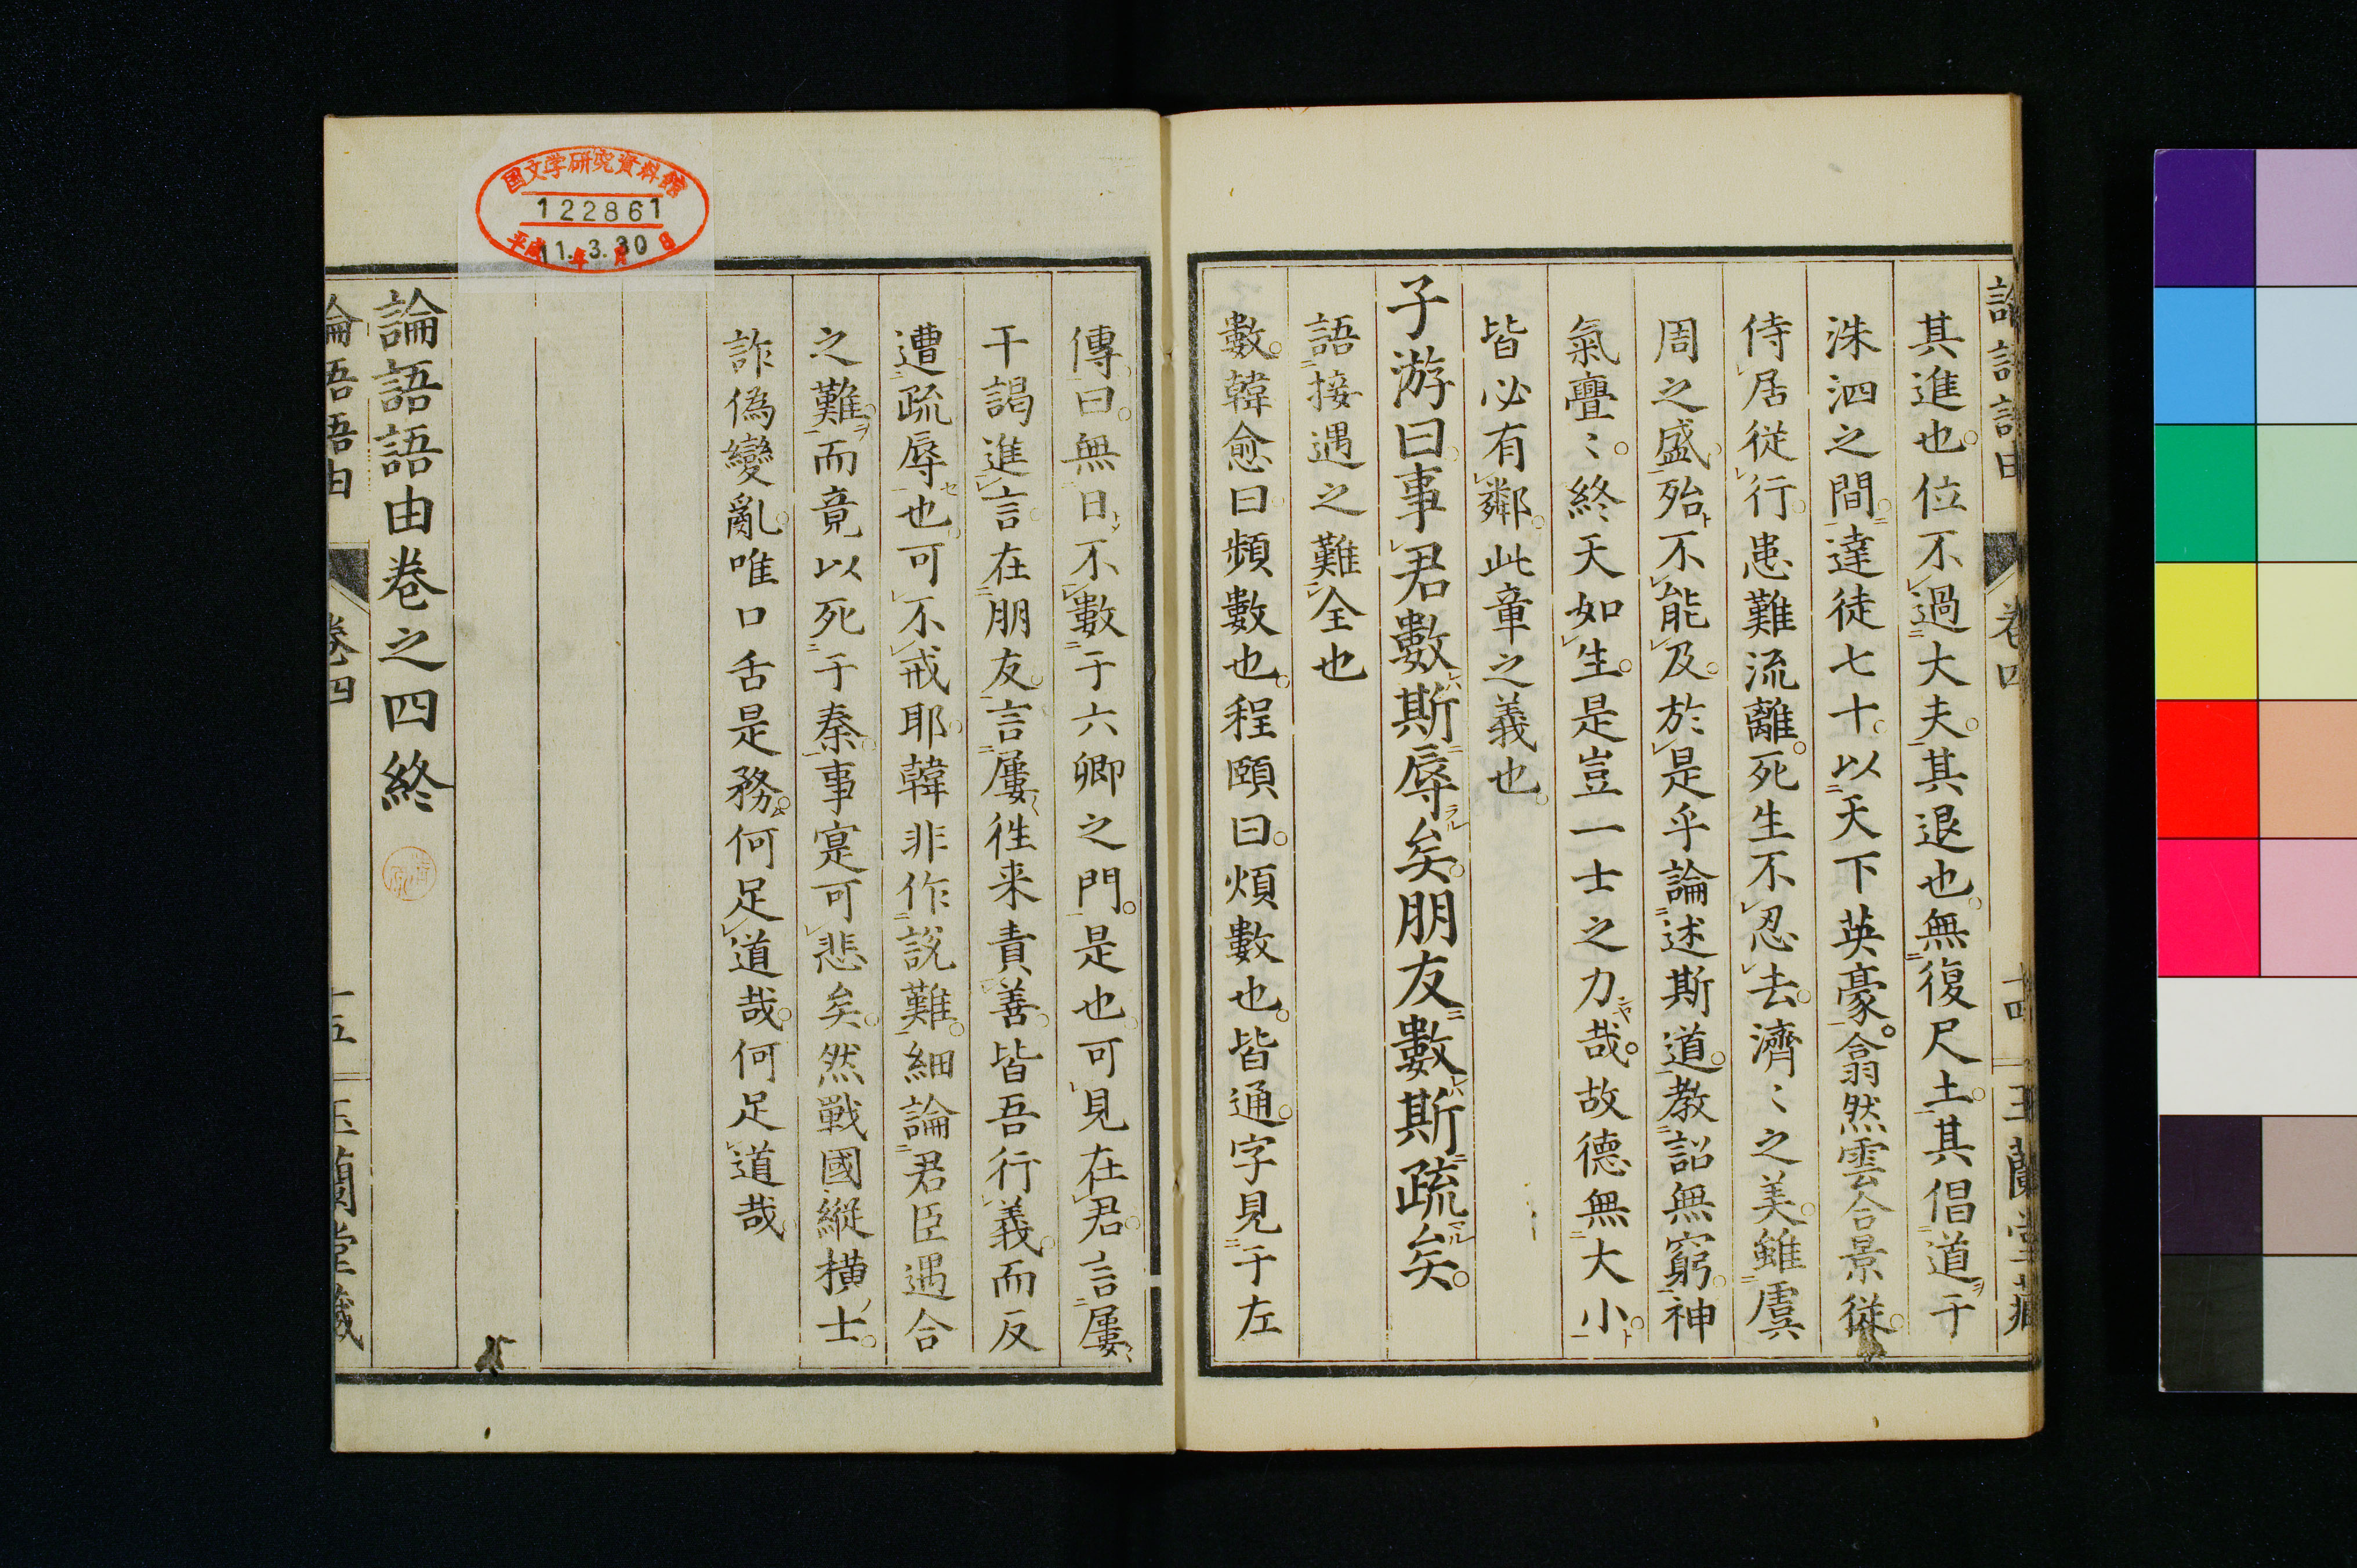 其進也位不過大夫其退也無復尺土其倡道于
洙泗之間達徒七十以天下英豪翕然雲合景從
侍居從行患難流離死生不忍去濟〻之美雖虞
周之盛殆不能及於是乎論述斯道教詔無窮神
氣亹〻終天如生是豈一士之力哉故德無大小
皆必有鄰此章之義也
子游曰事君數斯辱矣朋友數斯疏矣
語接遇之難全也
數韓愈曰頻數也程頤曰煩數也皆通字見于左
傳曰無日不數于六卿之門是也可見在君言屢〻
干謁進言在朋友言屢〻徃来責善皆吾行義而反
遭疏辱也可不戒耶韓非作說難細論君臣遇合
之難而竟以死于秦事寔可悲矣然戰國縱橫士
詐偽變亂唯口舌是務何足道哉何足道哉
論語語由卷之四終
論語語由 卷四 十五 玉蘭堂藏
国文学研究資料館
122861
平成11年3月30日